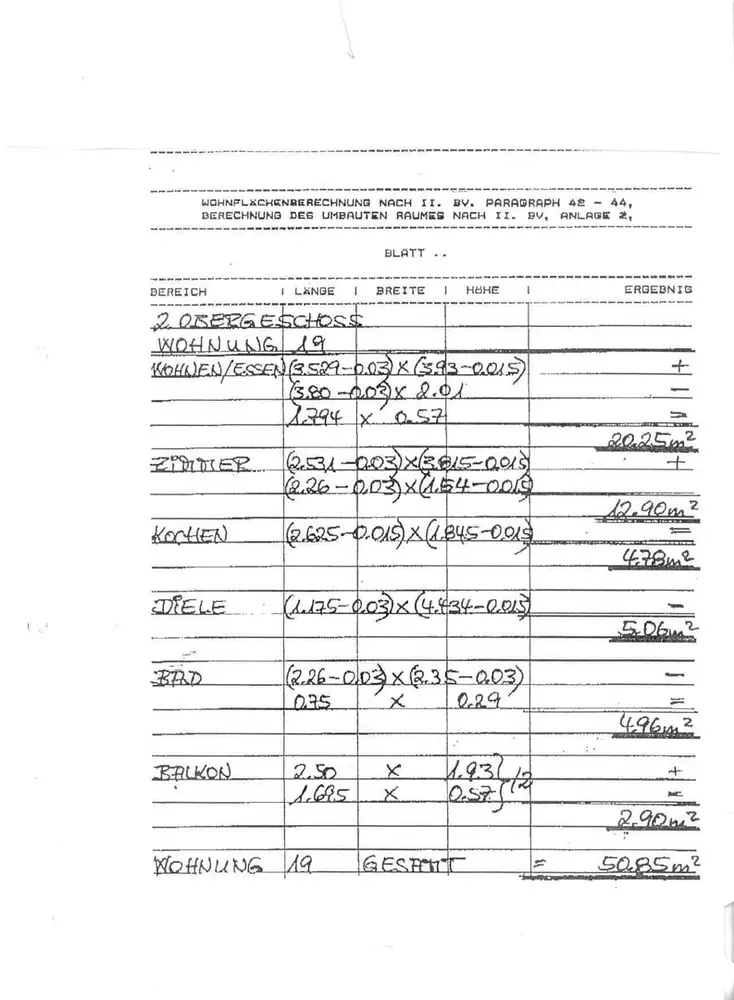 WOHNFLÄCHENBERECHNUNG NACH II. BV. PARAGRAPH 42 - 44,
BERECHNUNG DES UMBAUTEN RAUMES NACH II. BV, ANLAGE 2,
BLATT ..
BEREICH | LÄNGE | BREITE | HÖHE | ERGEBNIS
2 OBERGESCHOSS
WOHNUNG 19
WOHNEN/ESSEN (3.529-0.03) X (3.93-0.015) +
(3.80-0.03) X 2.01 -
1.794 X 0.57 =
20.25m²
ZIMMER (2.531-0.03) X (3.815-0.015) +
(2.26-0.03) X (1.54-0.015)
12.90m²
KOCHEN (2.625-0.015) X (1.845-0.015) =
4.78m²
DIELE (1.175-0.03) X (4.434-0.015) -
5.06m²
BAD (2.26-0.03) X (2.35-0.03) -
0.75 X 0.29 =
4.96m²
BALKON 2.50 X 1.93 +
1.695 X 0.57 } /2 =
2.90m²
WOHNUNG 19 GESAMT = 50.85m²